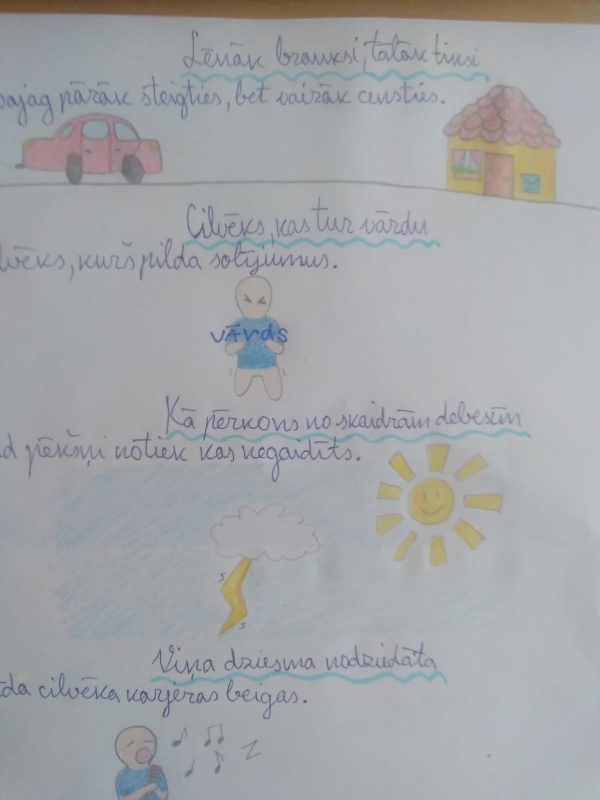 Lēnāk brauksi, tālāk tiksi
vajag pārāk steigties, bet vairāk censties.
Cilvēks, kas tur vārdu
lvēks, kurš pilda solījumus.
vārds
Kā pērkons no skaidrām debesīm
d pēkšņi notiek kas negaidīts.
Viņa dziesma nodziedāta
da cilvēka karjeras beigas.